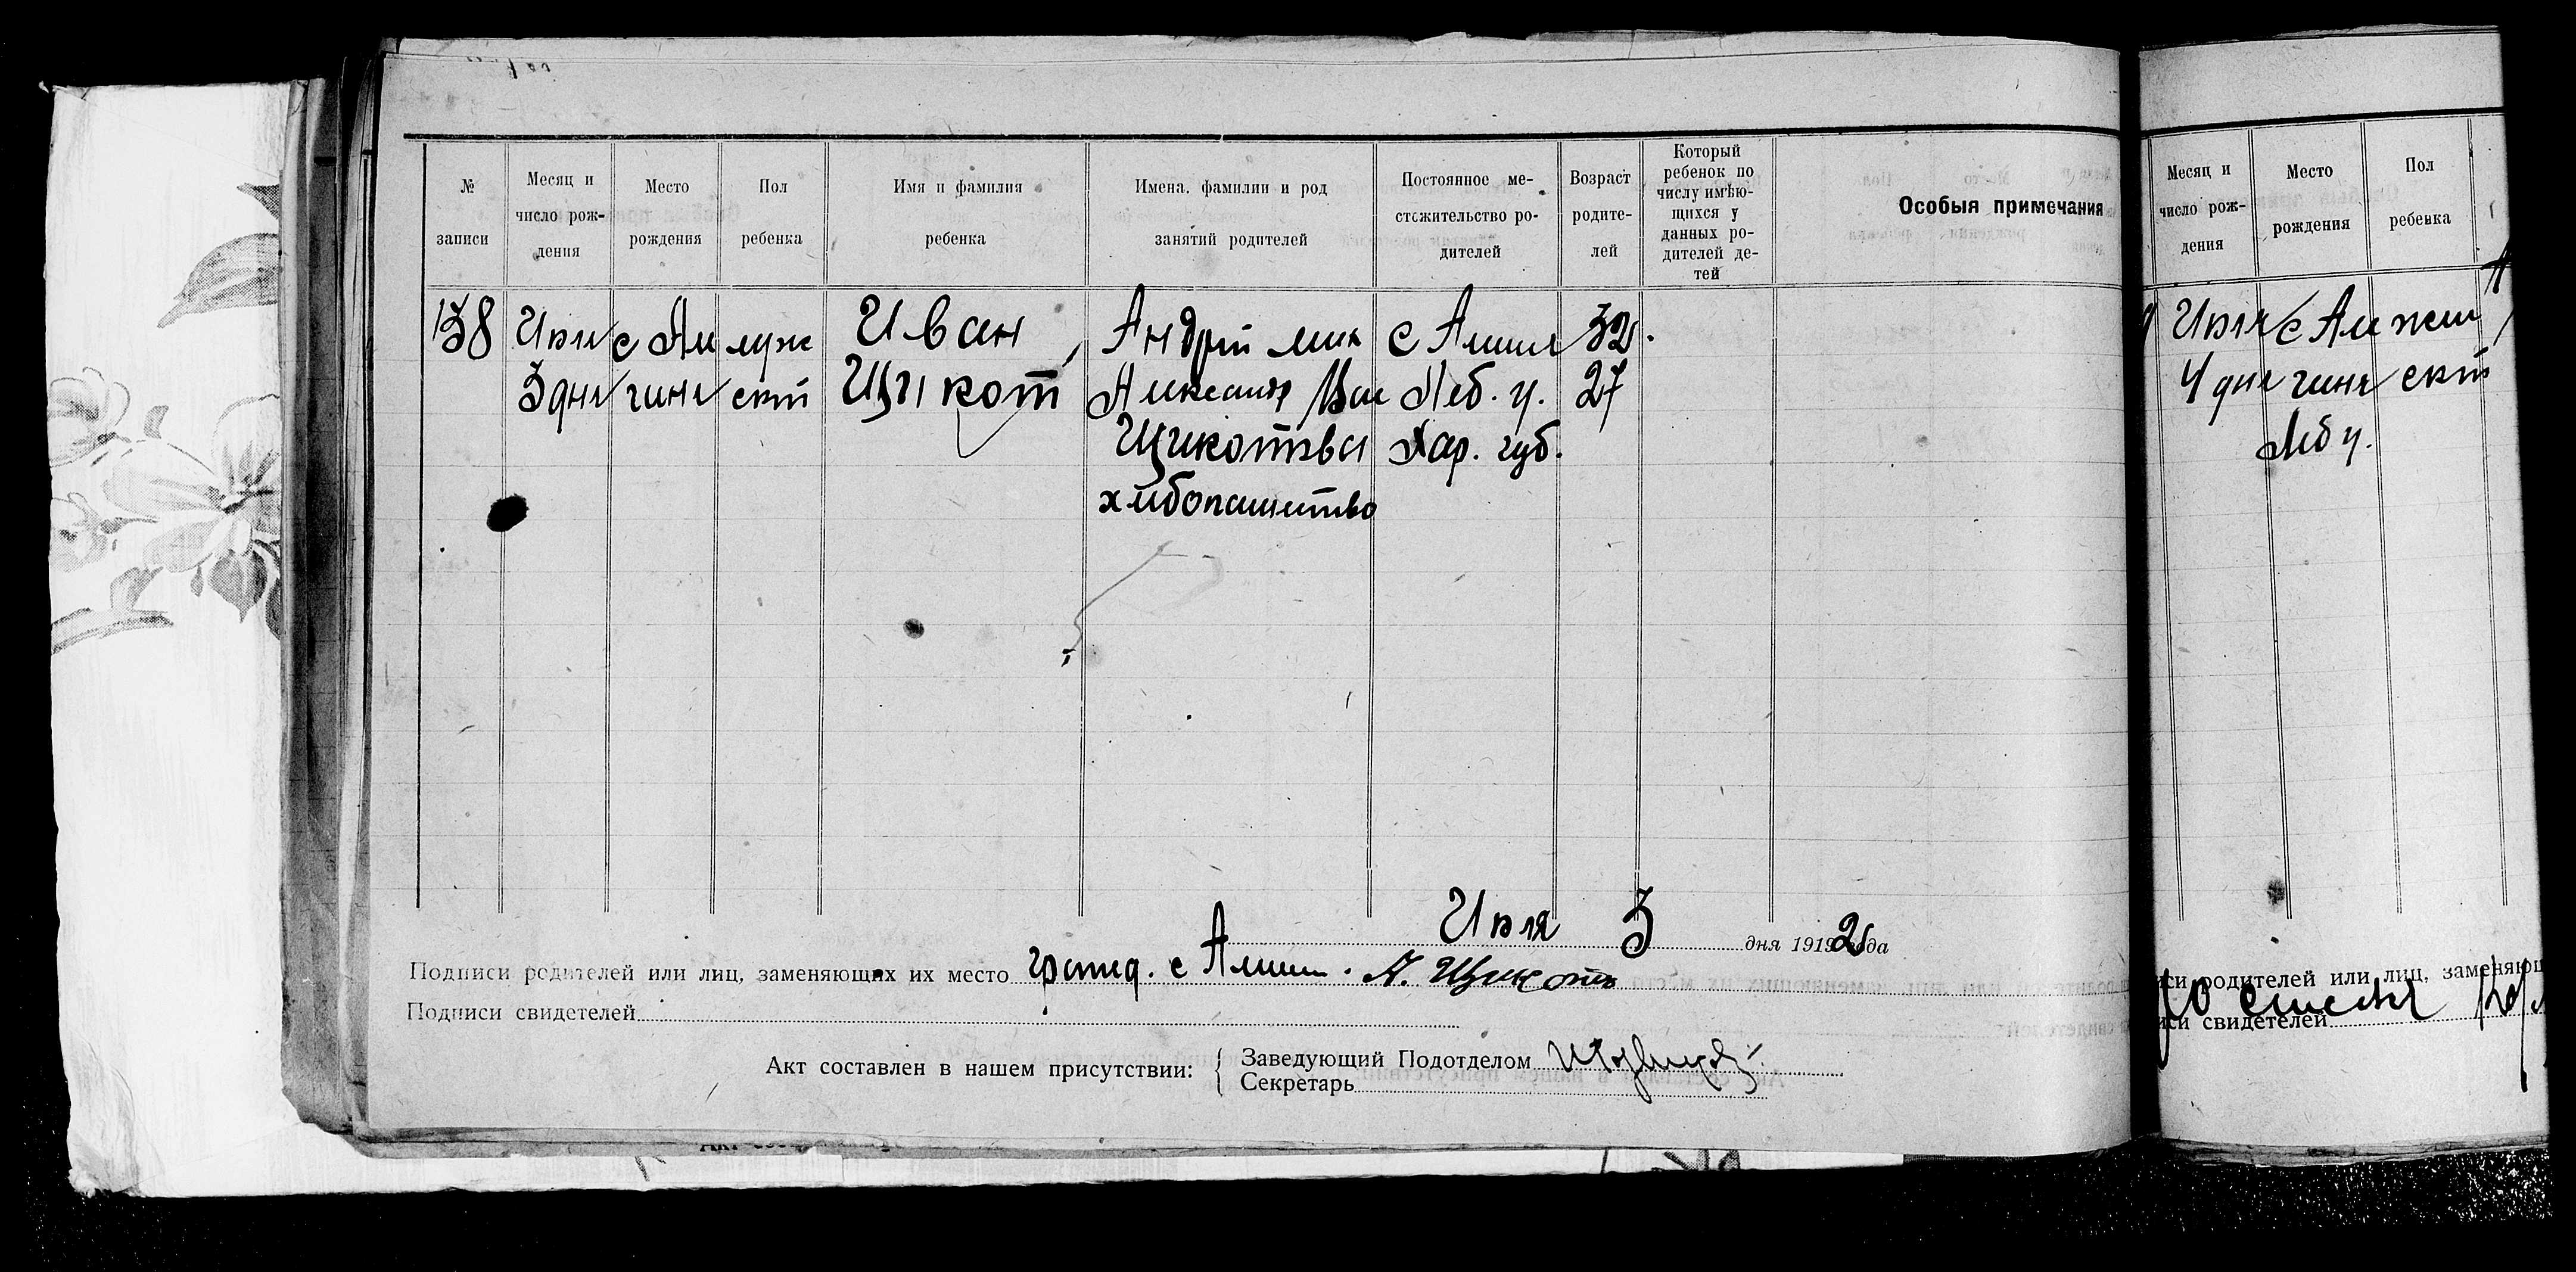 № записи
Месяц и число рождения
Место рождения
Пол ребенка
Имя и фамилия ребенка
Имена, фамилии и род занятий родителей
Постоянное местожительство родителей
Возраст родителей
Который ребенок по числу имѣющихся у данных родителей детей
Особыя примечания
138 Июля с Ам муж Иван Андрей с 32.
3 дня скт Щикот 27 Леб. у.
Щикотвы Хар. губ.
хлебопашество
Июля 3 дня 1919 2 года
Подписи родителей или лиц, заменяющих их место гражд. с А. Щикот
Подписи свидетелей
Акт составлен в нашем присутствии: { Заведующий Подотделом
Секретарь
Месяц и число рождения
Место рождения
Пол ребенка
Июля с жен
4 дня скт
Леб у.
иси родителей или лиц, заменяющ
иси свидетелей